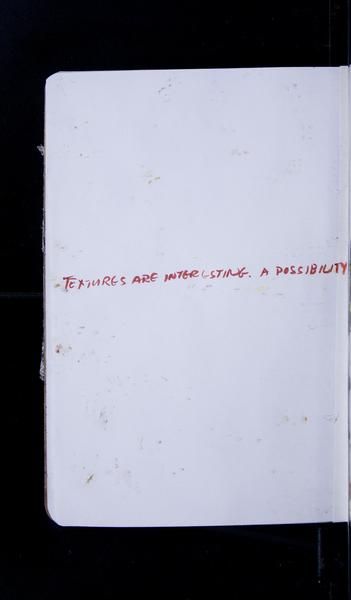 TEXTURES ARE INTERESTING. A POSSIBILITY